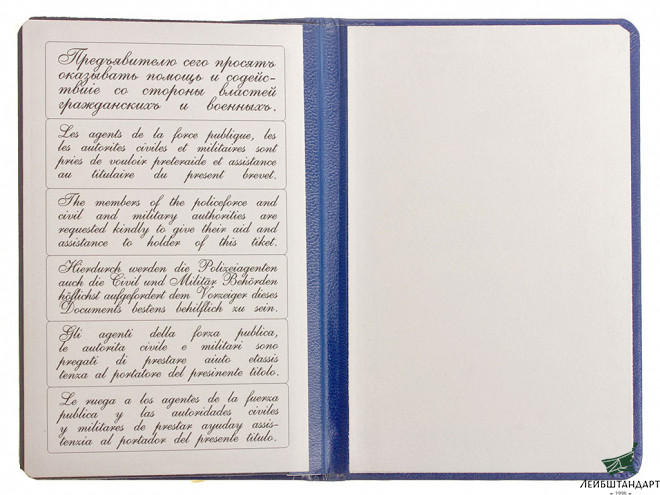 Предъявителю сего просятъ
оказывать помощь и содейс-
твiiе со стороны властей
гражданскихъ и военныхъ.
Les agents de la force publique, les
les autorites civiles et militaires sont
pries de vouloir preteraide et assistance
au titulaire du present brevet.
The members of the policeforce and
civil and military authorities are
requested kindly to give their aid and
assistance to holder of this tiket.
Hierdurch werden die Polizeiagenten
auch die Civil und Militär Behörden
höflichst aufgefordert dem Vorzeiger dieses
Documents bestens behilflich zu sein.
Gli agenti della forza publica,
le autorita civile e militari sono
pregati di prestare aiuto etassis
tenza al portatore del presinente titolo.
Le ruega a los agentes de la fuerza
publica y las autoridades civiles
y militares de prestar ayuday assis-
tenzia al portador del presente titulo.
ЛЕЙБШТАНДАРТ
1998